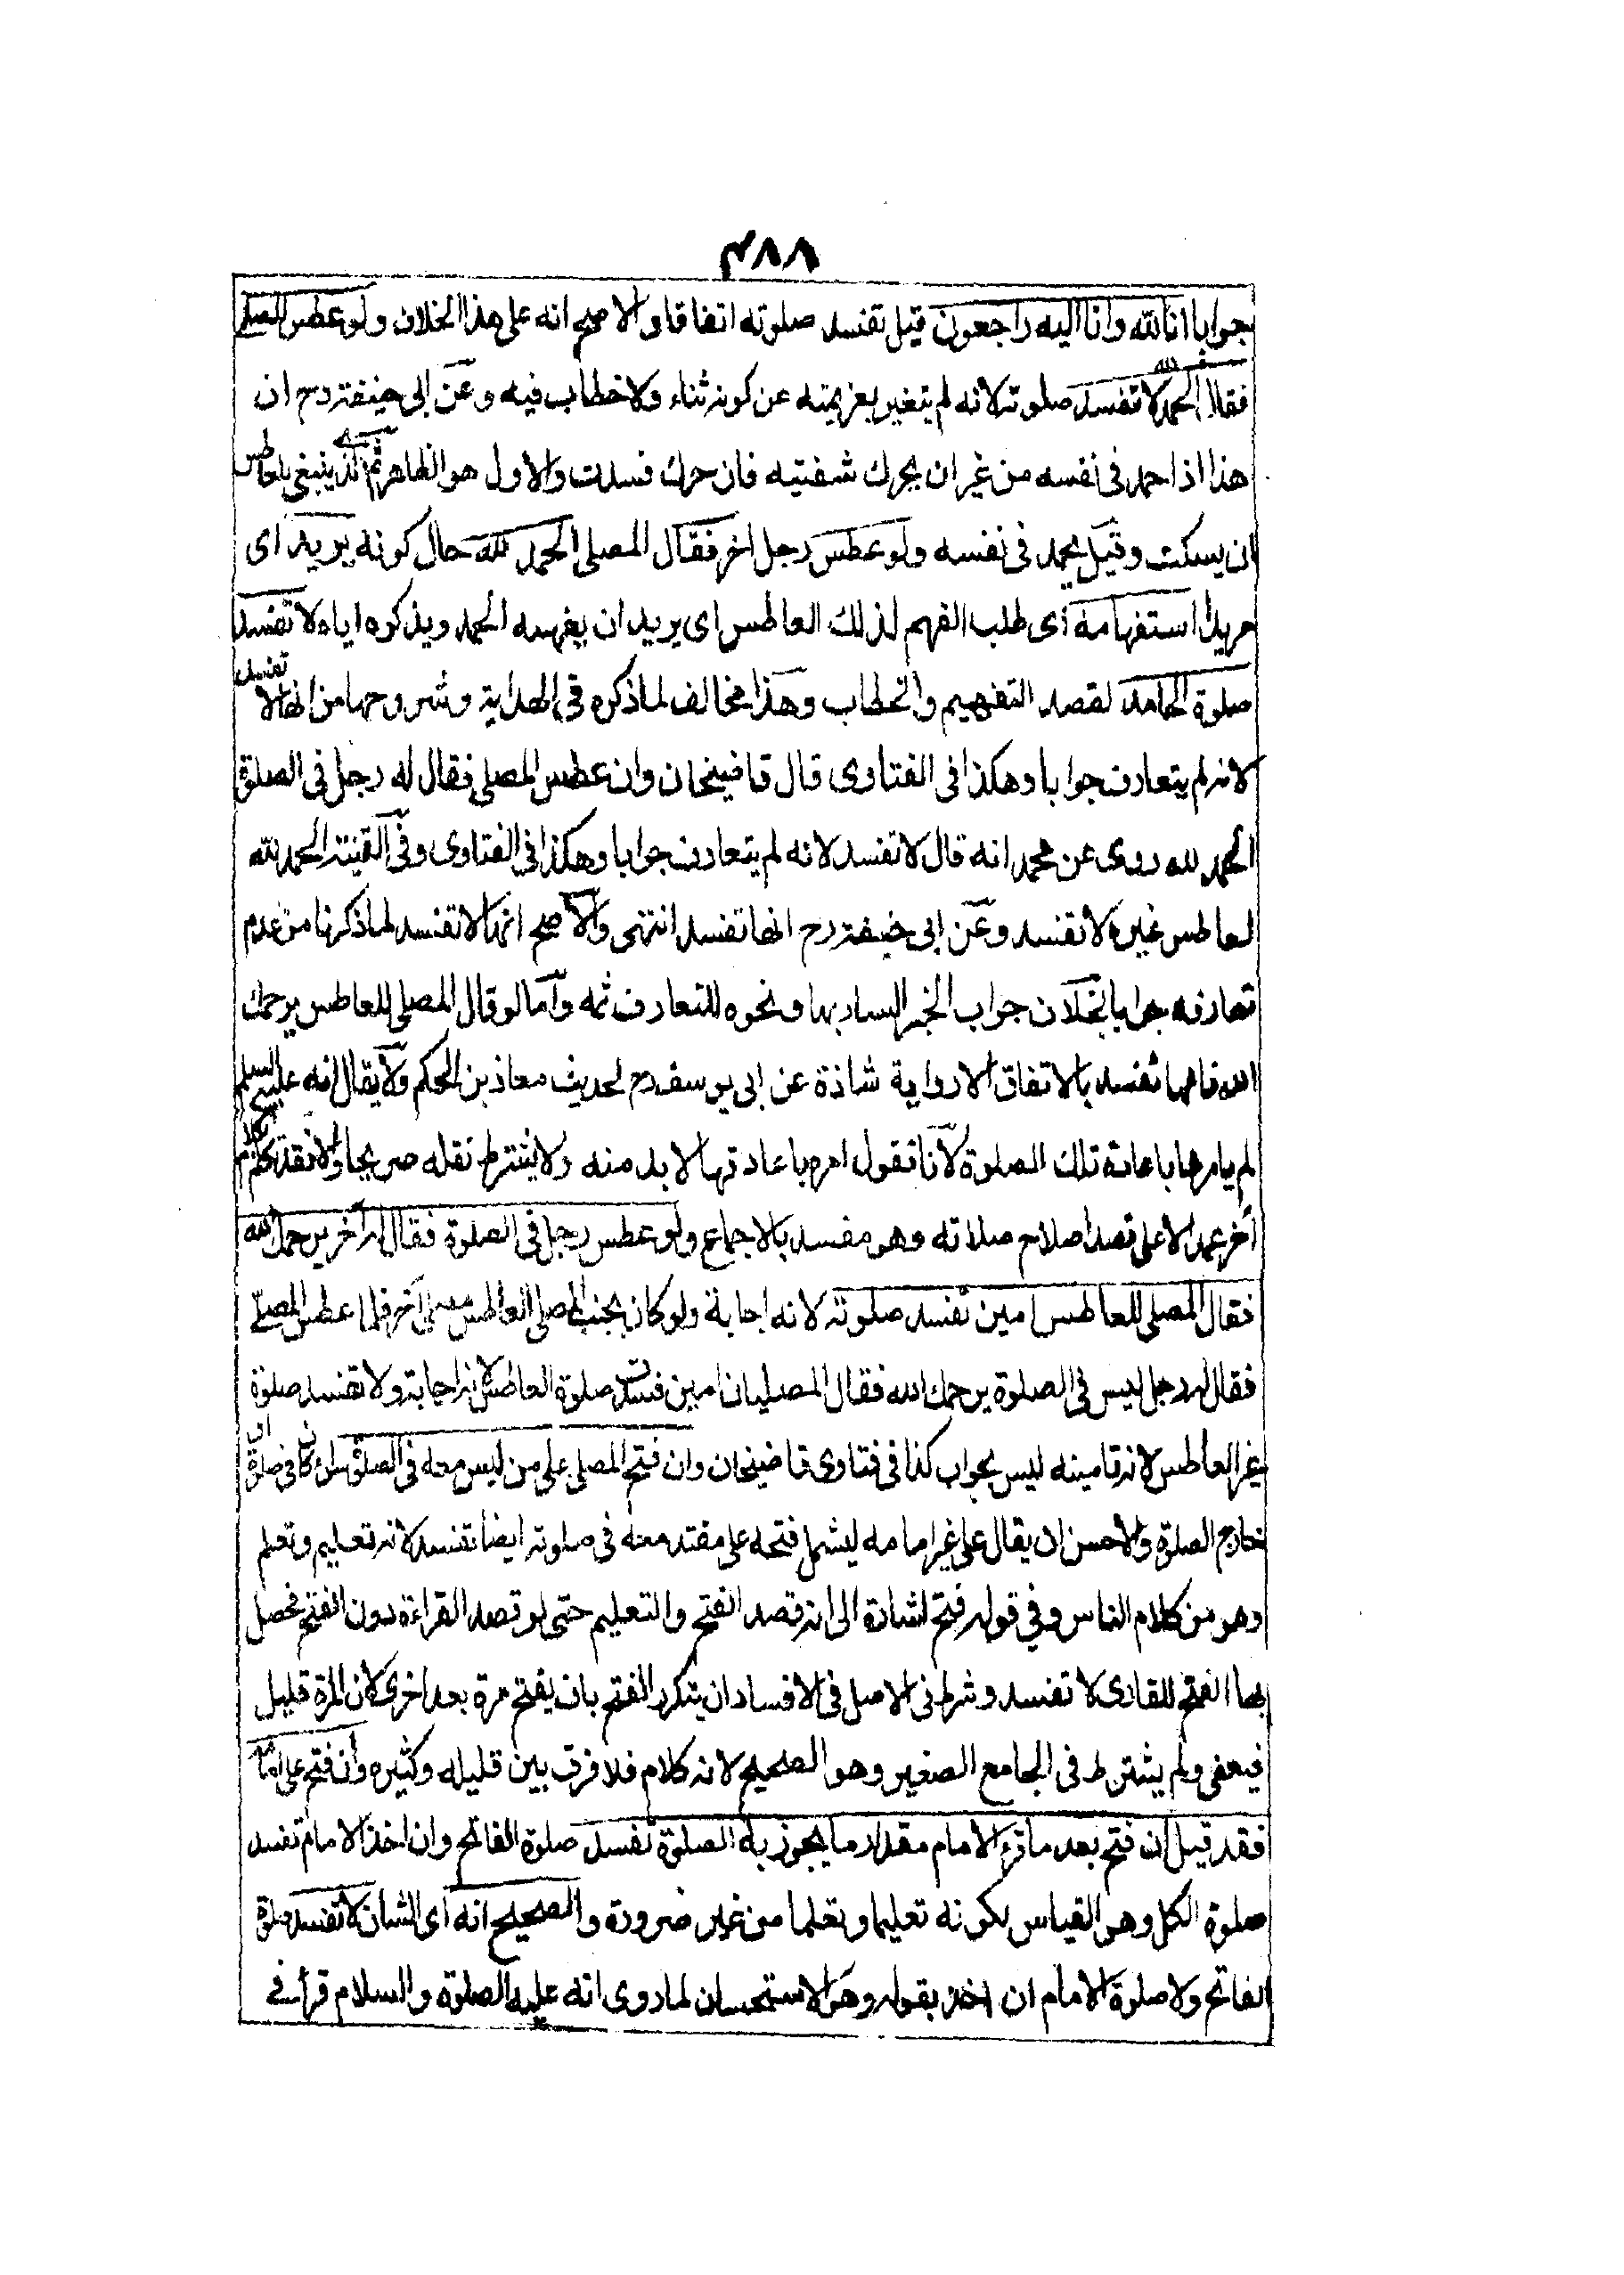 ٤٨٨
جوابا انا لله وانا اليه راجعون قيل تفسد صلوته اتفاقا والاصح انه على هذا الخلاف ولو عطس المصلى
فقال الحمد لله لا تفسد صلوته لانه لم يتغير بعزيمته عن كونه ثناء ولا خطاب فيه وعن ابى حنيفة رح ان
هذا اذا حمد فى نفسه من غير ان يحرك شفتيه فان حرك فسدت والاول هو الظاهر ثم الذى ينبغى للعاطس
ان يسكت وقيل يحمد فى نفسه ولو عطس رجل اخر فقال المصلى الحمد لله حال كونه يريد اى
مريدا استفهامه اى طلب الفهم لذلك العاطس اى يريد ان يفهمه الحمد ويذكره اياه لا تفسد
صلوة الحامد لقصد التفهيم والخطاب وهذا مخالف لما ذكره فى الهداية وشروحها من انها لا تفسد
لانه لم يتعارف جوابا وهكذا فى الفتاوى قال قاضيخان وان عطس المصلى فقال له رجل فى الصلوة
الحمد لله روى عن محمد انه قال لا تفسد لانه لم يتعارف جوابا وهكذا فى الفتاوى وفى القنية الحمد لله
لعاطس غيره لا تفسد وعن ابى حنيفة رح انها تفسد انتهى والاصح انها لا تفسد لما ذكرنا من عدم
تعارفه جوابا بخلاف جواب الخبر السار بها ونحوه للتعارف ثمه واما لو قال المصلى للعاطس يرحمك
الله فانها تفسد بالاتفاق الا رواية شاذة عن ابى يوسف رح لحديث معاذ بن الحكم ولا يقال انه عليه السلم
لم يامرها باعادة تلك الصلوة لانا نقول امره باعادتها لا بد منه ولا يشترط نقله صريحا والا فقد تكلم
آخر عمدا لا على قصد اصلاح صلاته وهو مفسد بالاجماع ولو عطس رجل فى الصلوة فقال له آخر يرحمك الله
فقال المصلى للعاطس امين تفسد صلوته لانه اجابة ولو كان بجنب المصلى العاطس مصلى آخر فلما عطس المصلى
فقال له رجل ليس فى الصلوة يرحمك الله فقال المصليان امين فسدت صلوة العاطس لانه اجابة ولا تفسد صلوة
غير العاطس لانه تامينه ليس بجواب كذا فى فتاوى قاضيخان وان فتح المصلى على من ليس معه فى الصلوة سواء كان فى صلوة او
خارج الصلوة والاحسن ان يقال على غير امامه ليشمل فتحه على مقتد معه فى صلوته ايضا تفسد لانه تعليم وتعلم
وهو من كلام الناس وفى قوله فتح اشارة الى انه قصد الفتح والتعليم حتى لو قصد القراءة دون الفتح فحصل
بها الفتح للقارى لا تفسد وشرط فى الاصل فى الافساد ان يتكرر الفتح بان يفتح مرة بعد اخرى لان المرة قليل
فيعفى ولم يشترط فى الجامع الصغير وهو الصحيح لانه كلام فلا فرق بين قليله وكثيره وان فتح على امامه
فقد قيل ان فتح بعد ما قرء الامام مقدار ما يجوز به الصلوة تفسد صلوة الفاتح وان اخذ الامام تفسد
صلوة الكل وهو القياس لكونه تعليما وتعلما من غير ضرورة والصحيح انه اى الشان لا تفسد صلوة
الفاتح ولا صلوة الامام ان اخذ بقوله وهو الاستحسان لما روى انه عليه الصلوة والسلام قرأ فى